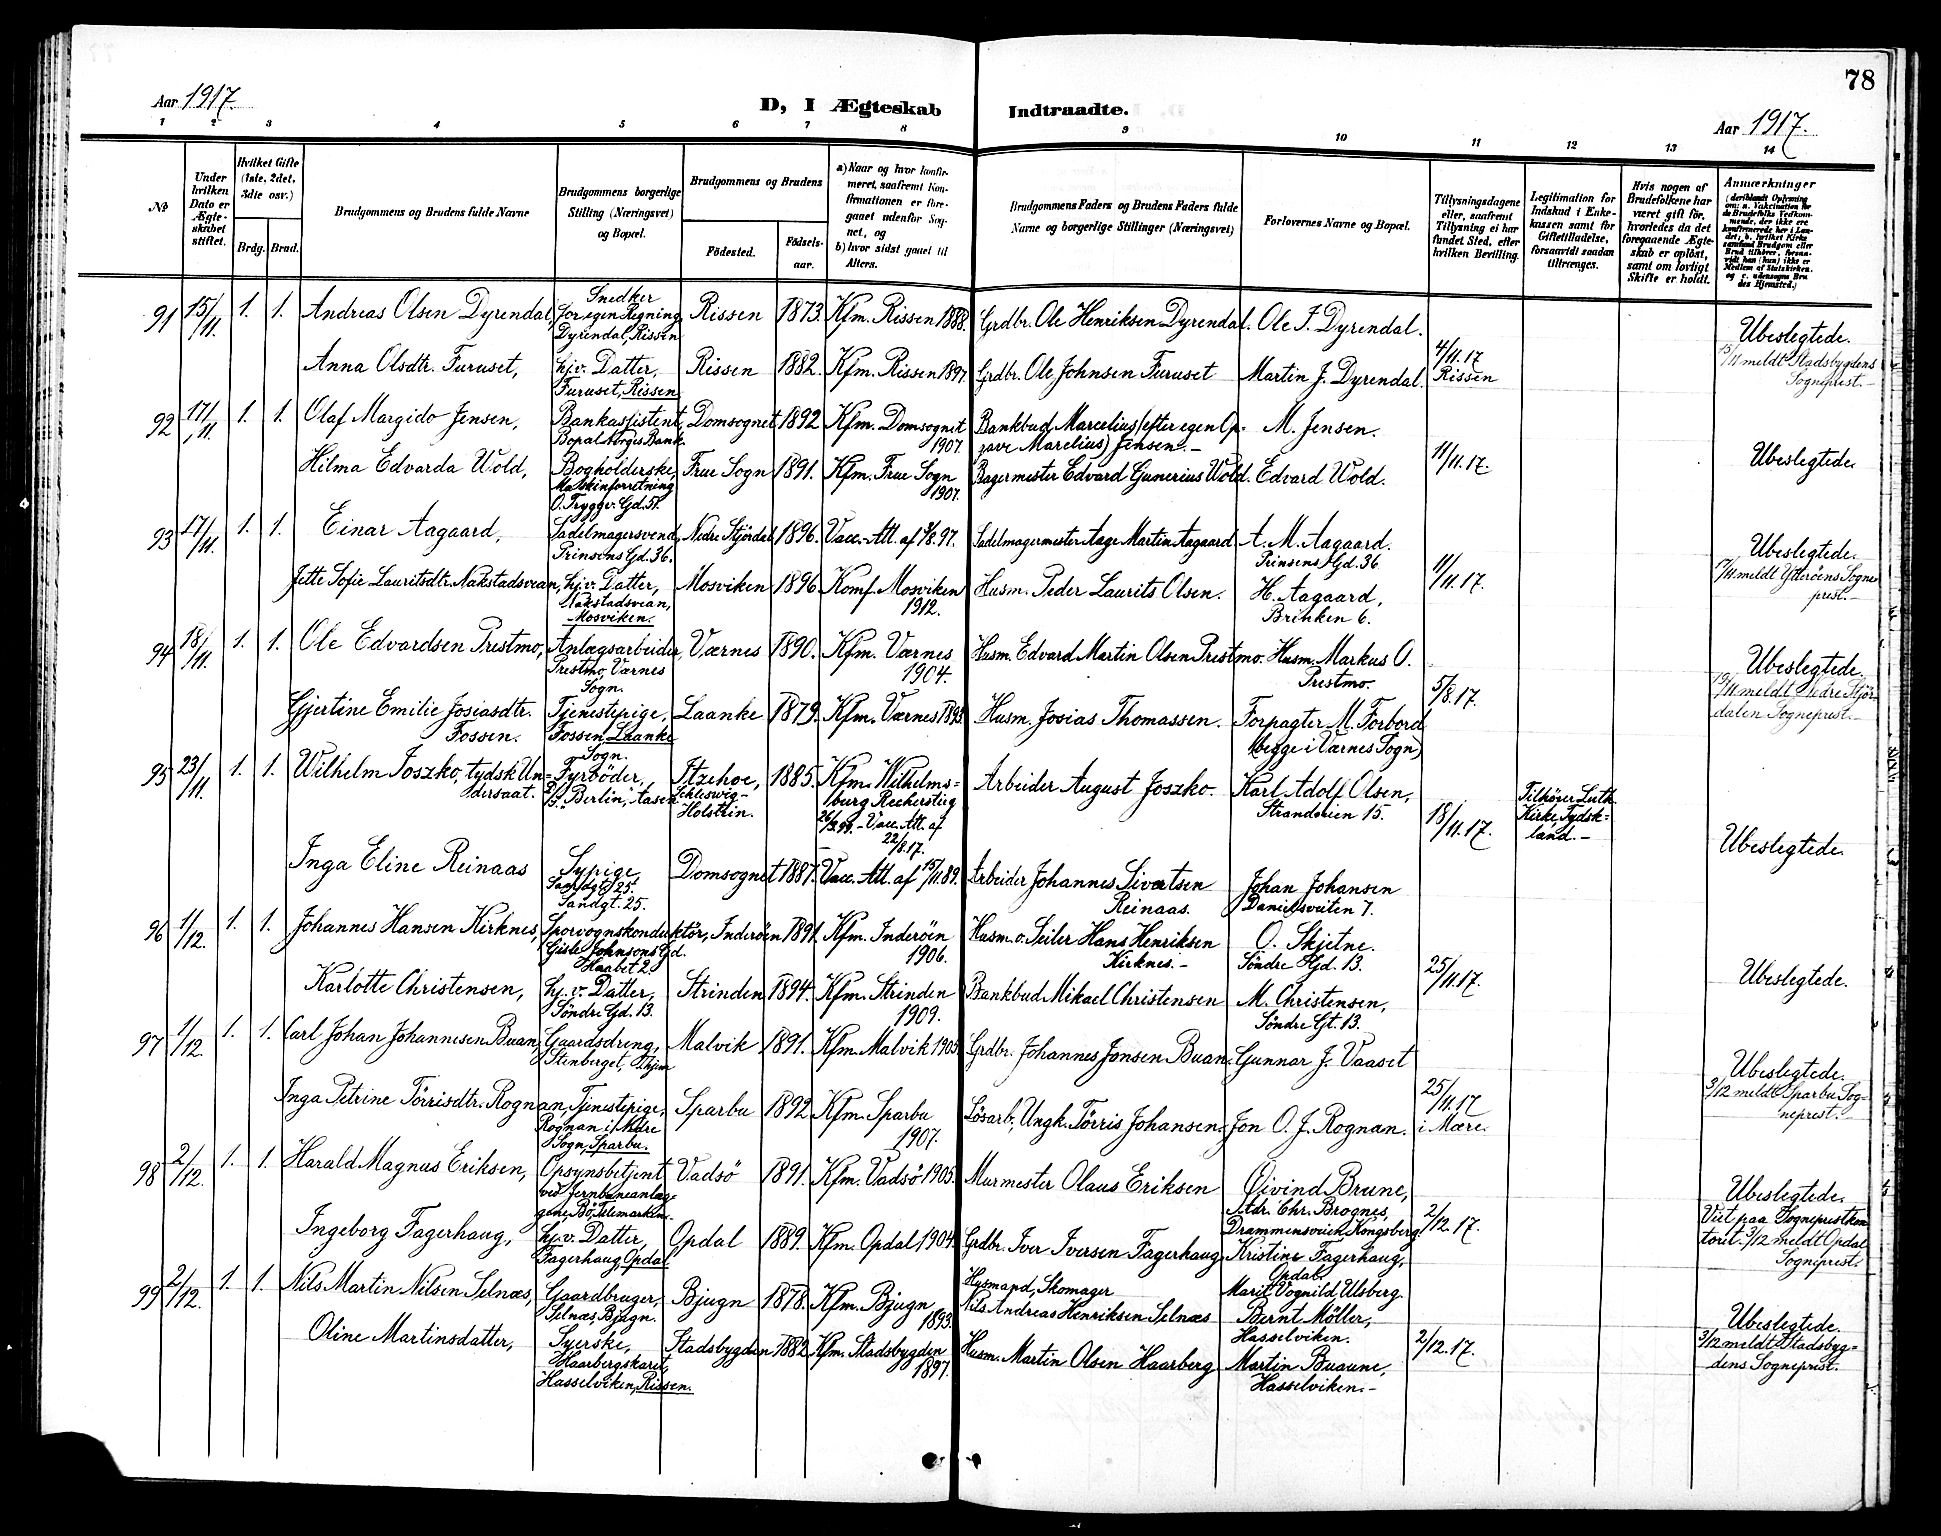 78
Aar 1917.
D, I Ægteskab Indtraadte.
Aar 1917.
1 2 3 4 5 6 7 8 9 10 11 12 13 14
№
Under hvilken Dato er Ægteskabet stiftet.
Hvilket Gifte (1ste, 2det, 3die osv.)
Brdg. Brud.
Brudgommens og Brudens fulde Navne
Brudgommens borgerlige Stilling (Næringsvei) og Bopæl.
Brudgommens og Brudens
Fødested.
Fødselsaar.
a) Naar og hvor konfirmeret, saafremt Konfirmationen er foregaaet udenfor Sognet, og
b) hvor sidst gaaet til Alters.
Brudgommens Faders og Brudens Faders fulde Navne og borgerlige Stillinger (Næringsvei)
Forlovernes Navne og Bopæl.
Tillysningsdagene eller, saafremt Tillysning ei har fundet Sted, efter hvilken Bevilling.
Legitimation for Indskud i Enkekassen samt for Giftetilladelse, forsaavidt saadan tiltrænges.
Hvis nogen af Brudefolkene har været gift før, hvorledes da det foregaaende Ægteskab er opløst, samt om lovligt Skifte er holdt.
Anmærkninger
91 15/11. 1. 1. Andreas Olsen Dyrendal, Snedker for egen Regning, Dyrendal, Rissen Rissen 1873. Kfm. Rissen 1888. Grdbr. Ole Henriksen Dyrendal. Ole F. Dyrendal.
Anna Olsdtr. Furuset, hj.v. Datter, Furuset, Rissen Rissen 1882. Kfm. Rissen 1897. Grdbr. Ole Johnsen Furuset Martin J. Dyrendal. 4/11.17 Rissen Ubeslegtede. 15/11 meldt Stadsbygdens Sogneprest.-
92 17/11. 1. 1. Olaf Margido Jensen, Bankassistent, Bopal Norges Bank. Domsognet 1892 Kfm. Domsognet 1907. Bankbud Marcelius (efter egen Opgave Marelius) Jensen.- M. Jensen.
Hilma Edvarda Wold, Bogholderske, Maskinforretning O. Tryggv. Gd. 51. Frue Sogn 1891. Kfm. Frue Sogn 1907. Bagermester Edvard Gunerius Wold. Edvard Wold. 11/11.17. Ubeslegtede.
93 17/11. 1. 1. Einar Aagaard, Sadelmagersvend, Prinsens Gd. 36. Nedre Stjördal 1896. Vacc.-Att. af /8.97. Sadelmagermester Aage Martin Aagaard A. M. Aagaard. Prinsens Gd. 36
Jette Sofie Lauritsdtr. Nakstadsvean, hj.v. Datter, Nakstadsvean, Mosviken. Mosviken 1896. Komf. Mosviken 1912. Husm. Peder Laurits Olsen. H. Aagaard, Brinken 6. 11/11.17. Ubeslegtede. 17/11 meldt Ytteröens Sogneprest.-
94 18/11. 1. 1. Ole Edvardsen Prestmo, Anlægsarbeider, Prestmo, Værnes Sogn. Værnes 1890. Kfm. Værnes 1904. Husm. Edvard Martin Olsen Prestmo. Husm. Markus O. Prestmo.
Gjertine Emilie Josiasdtr. Fossen. Tjenestepige, Fossen, Laanke Sogn. Laanke 1879. Kfm. Værnes 1893. Husm. Josias Thomassen. Forpagter M. Forbord (begge i Værnes Sogn) 5/8.17. Ubeslegtede. 19/11 meldt Nedre Stjördalen Sogneprest.-
95 23/11. 1. 1. Wilhelm Joszko, tydsk Undersaat. Fyrböder, D/S. "Berlin," Aasen Itzehoe, Schleswig-Holstein. 1885. Kfm. Wilhelmsburg Reicherstieg 26/3.99.- Vacc. Att. af 22/8.17. Arbeider August Joszko. Karl Adolf Olsen, Strandveien 15.
Inga Eline Reinaas Sypige, Sandgt. 25. Sandgt. 25. Domsognet 1887. Vacc. Att. af 15/11.89. Arbeider Johannes Sivertsen Reinaas. Johan Johansen Danielsveiten 7. 18/11.17. Tilhörer Luth. Kirke, Tydskland.- Ubeslegtede.
96 1/12. 1. 1. Johannes Hansen Kirknes, Sporvognskonduktör, Gisle Johnsons Gd. Haabet 2. Inderöen 1891. Kfm. Inderöen 1906. Husm. o. Seiler Hans Henriksen Kirknes.- O. Skjetne. Söndre Gd. 13.
Karlotte Christensen, hj.v. Datter, Söndre Gd. 13. Strinden 1894. Kfm. Strinden 1909. Bankbud Mikael Christensen M. Christensen, Söndre Gt. 13. 25/11.17. Ubeslegtede.
97 1/12. 1. 1. Carl Johan Johannesen Buan, Gaardsdreng, Stenberget, Malvik 1891. Kfm. Malvik 1905. Grdbr. Johannes Jonsen Buan. Gunnar J. Vaaset
Inga Petrine Törrisdtr. Rognan, Tjenestepige, Rognan i Mære Sogn, Sparbu. Sparbu 1892 Kfm. Sparbu 1907. Lösarb., Ungk. Törris Johansen. Jon O. J. Rognan. 25/11.17 i Mære. Ubeslegtede. 3/12 meldt Sparbu Sogneprest.-
98 2/12. 1. 1. Harald Magnus Eriksen, Opsynsbetjent ved Jernbaneanlægene, Bö, Telemarken. Vadsö 1891. Kfm. Vadsö 1905. Murmester Olaus Eriksen Öivind Brune, Adr. Chr. Brognes, Drammensveien, Kongsberg.
Ingeborg Fagerhaug, hj.v. Datter, Fagerhaug, Opdal Opdal 1889. Kfm. Opdal 1904. Grdbr. Iver Iversen Fagerhaug Kristine Fagerhaug, Opdal. Marit Vognild, Ulsberg. 2/12.17. Ubeslegtede. Viet paa Sogneprestkontoret. 3/12 meldt Opdal Sogneprest.
99 2/12. 1. 1. Nils Martin Nilsen Selnæs, Gaardbruger, Selnæs, Bjugn. Bjugn 1878. Kfm. Bjugn 1893. Husmand, Skomager Nils Andreas Henriksen Selnæs Bernt Möller, Hasselviken.
Oline Martinsdatter, Syerske, Haarbergskaret, Hasselviken, Rissen. Stadsbygden 1882. Kfm. Stadsbygden 1897. Husm. Martin Olsen Haarberg Martin Buaune, Hasselviken.- 2/12.17. Ubeslegtede. 3/12 meldt Stadsbygdens Sogneprest.